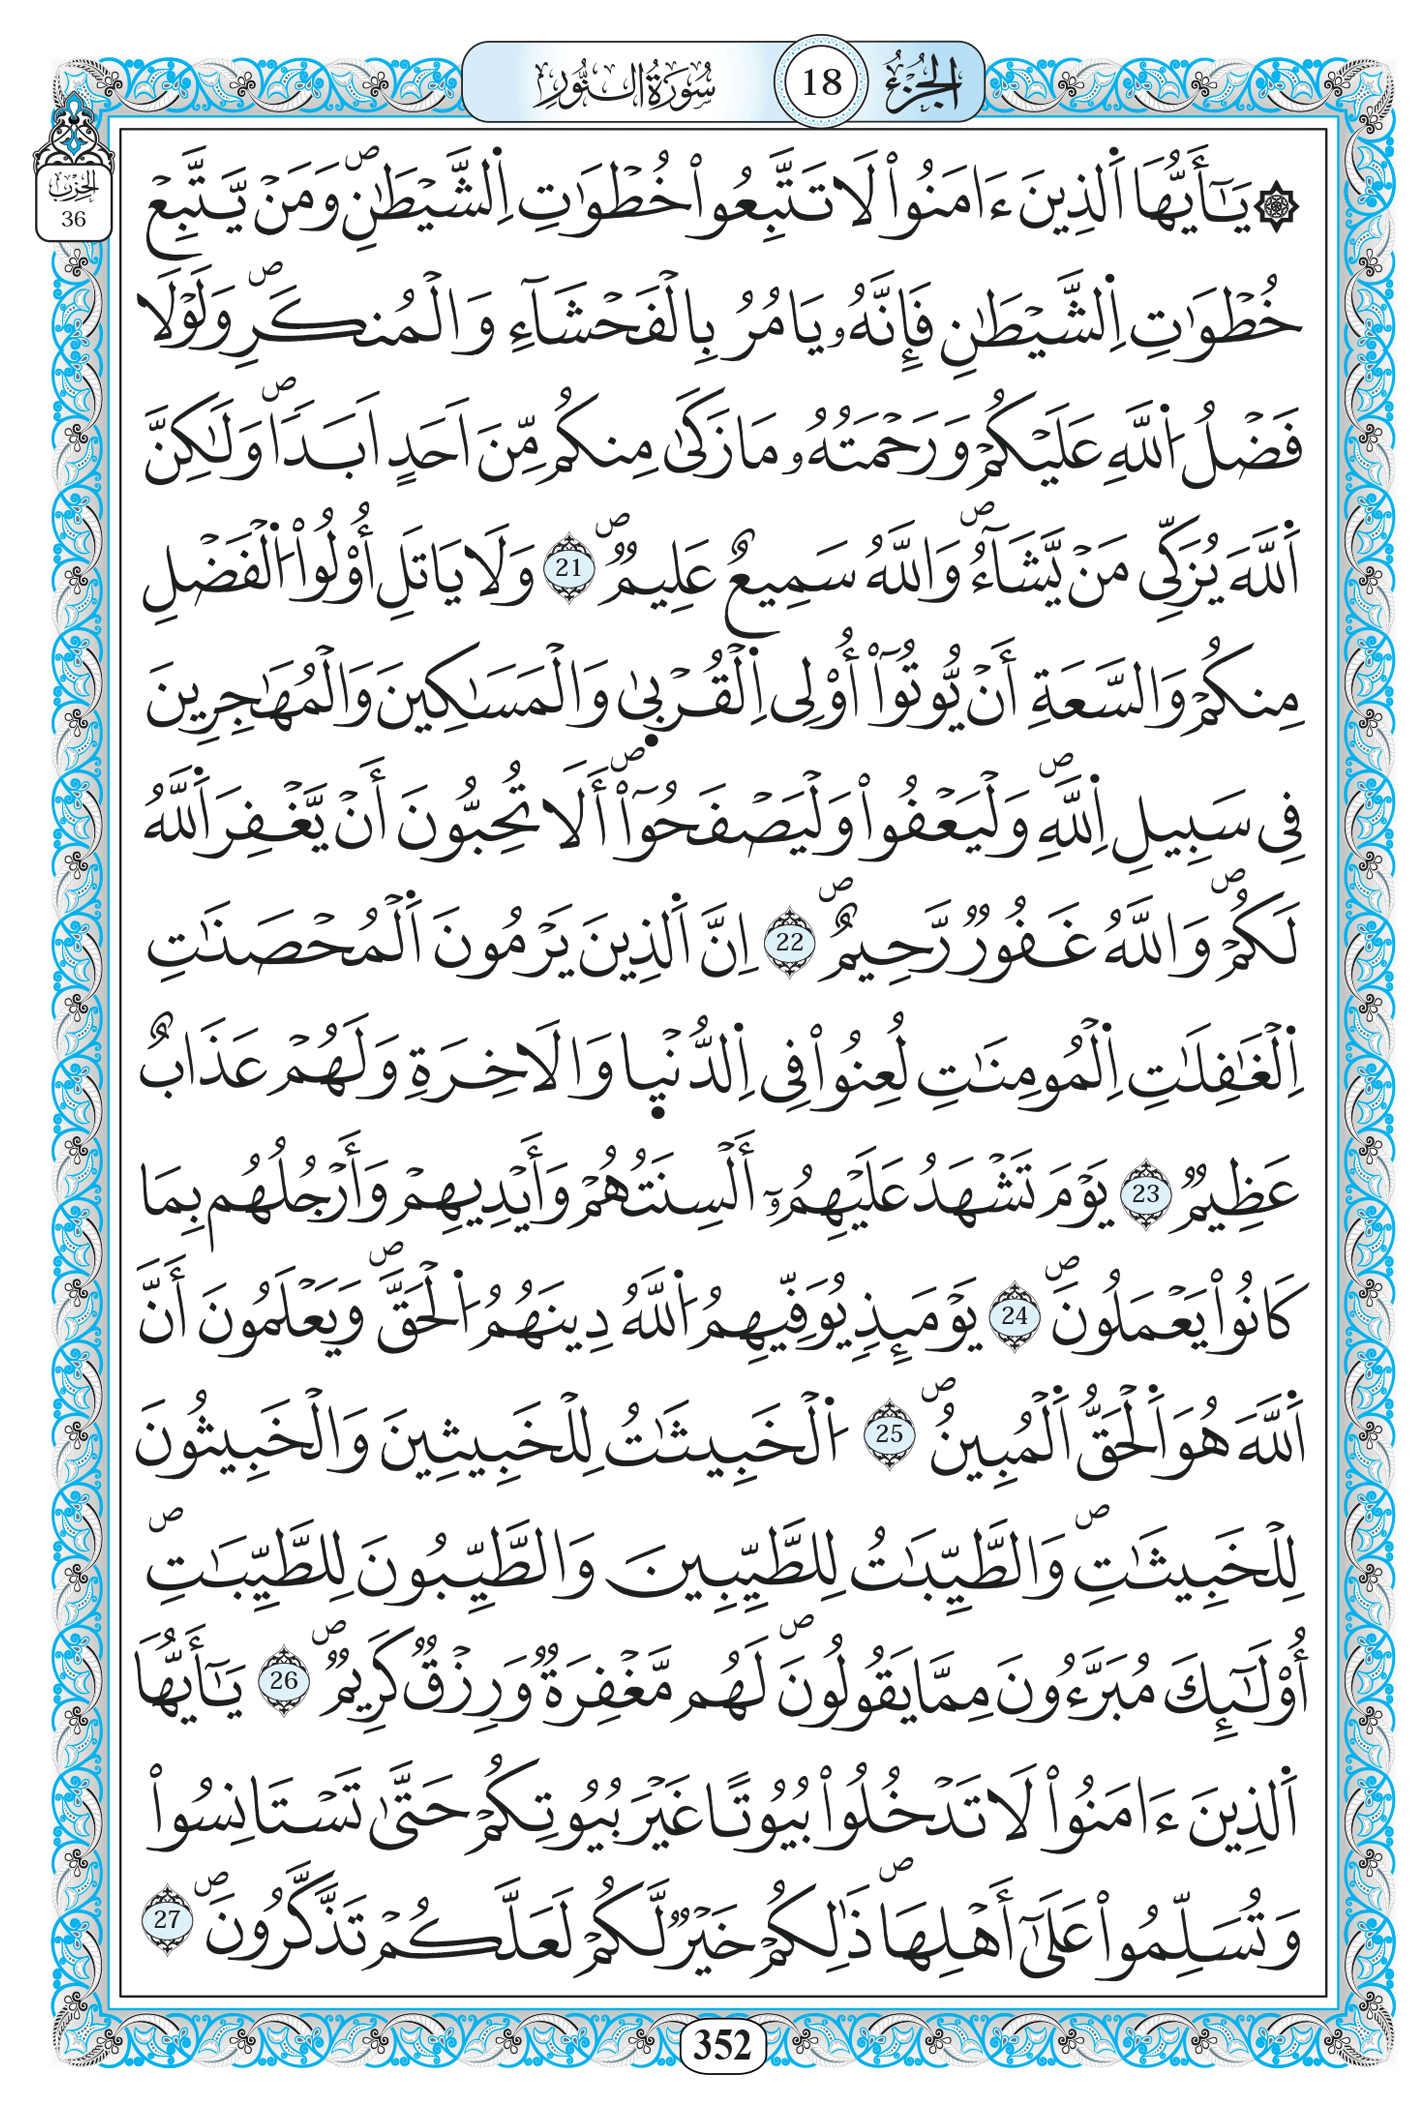 الجزء 18 سورة النور
الحزب
36
۞ يَـٰٓأَيُّهَا اَ۬لذِينَ ءَامَنُواْ لَا تَتَّبِعُواْ خُطْوَٰتِ اِ۬لشَّيْطَٰنِۖ وَمَنْ يَّتَّبِعْ
خُطْوَٰتِ اِ۬لشَّيْطَٰنِ فَإِنَّهُۥ يَامُرُ بِالْفَحْشَآءِ وَالْمُنكَرِۖ وَلَوْلَا
فَضْلُ اُ۬للَّهِ عَلَيْكُمْ وَرَحْمَتُهُۥ مَا زَكَىٰ مِنكُم مِّنَ اَحَدٍ اَبَداٗۖ وَلَٰكِنَّ
اَ۬للَّهَ يُزَكِّى مَنْ يَّشَآءُۖ وَاللَّهُ سَمِيعٌ عَلِيمٞۖ 21 وَلَا يَاتَلِ أُوْلُواْ اُ۬لْفَضْلِ
مِنكُمْ وَالسَّعَةِ أَنْ يُّوتُوٓاْ أُوْلِى اِ۬لْقُرْبۭىٰ وَالْمَسَٰكِينَ وَالْمُهَٰجِرِينَ
فِى سَبِيلِ اِ۬للَّهِۖ وَلْيَعْفُواْ وَلْيَصْفَحُوٓاْۖ أَلَا تُحِبُّونَ أَنْ يَّغْفِرَ اَ۬للَّهُ
لَكُمْۖ وَاللَّهُ غَفُورٞ رَّحِيمٌۖ 22 اِنَّ اَ۬لذِينَ يَرْمُونَ اَ۬لْمُحْصَنَٰتِ
اِ۬لْغَٰفِلَٰتِ اِ۬لْمُومِنَٰتِ لُعِنُواْ فِى اِ۬لدُّنْيۭا وَالَاخِرَةِ وَلَهُمْ عَذَابٌ
عَظِيمٞ 23 يَوْمَ تَشْهَدُ عَلَيْهِمُۥٓ أَلْسِنَتُهُمْ وَأَيْدِيهِمْ وَأَرْجُلُهُم بِمَا
كَانُواْ يَعْمَلُونَۖ 24 يَوْمَئِذٖ يُوَفِّيهِمُ اُ۬للَّهُ دِينَهُمُ اُ۬لْحَقَّۖ وَيَعْلَمُونَ أَنَّ
اَ۬للَّهَ هُوَ اَ۬لْحَقُّ اُ۬لْمُبِينُۖ 25 اُ۬لْخَبِيثَٰتُ لِلْخَبِيثِينَ وَالْخَبِيثُونَ
لِلْخَبِيثَٰتِۖ وَالطَّيِّبَٰتُ لِلطَّيِّبِينَ وَالطَّيِّبُونَ لِلطَّيِّبَٰتِۖ
أُوْلَٰٓئِكَ مُبَرَّءُونَ مِمَّا يَقُولُونَۖ لَهُم مَّغْفِرَةٞ وَرِزْقٞ كَرِيمٞۖ 26 يَـٰٓأَيُّهَا
اَ۬لذِينَ ءَامَنُواْ لَا تَدْخُلُواْ بُيُوتاً غَيْرَ بُيُوتِكُمْ حَتَّىٰ تَسْتَانِسُواْ
وَتُسَلِّمُواْ عَلَىٰٓ أَهْلِهَاۖ ذَٰلِكُمْ خَيْرٞ لَّكُمْ لَعَلَّكُمْ تَذَّكَّرُونَۖ 27
352